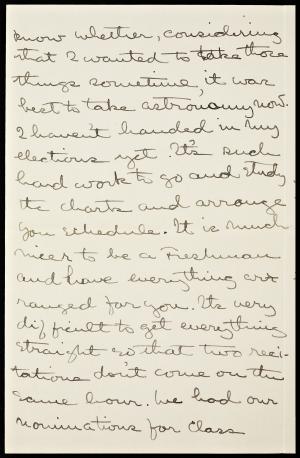 know whether, considering
that I wanted to take those
things sometime, it was
best to take astronomy now.
I haven't handed in my
elections yet. It's such
hard work to go and study
the charts and arrange
you schedule. It is much
nicer to be a Freshman
and have everything ar-
ranged for you. Its very
difficult to get everything
straight so that two reci-
tations don't come on the
same hour. We had our
nominations for Class